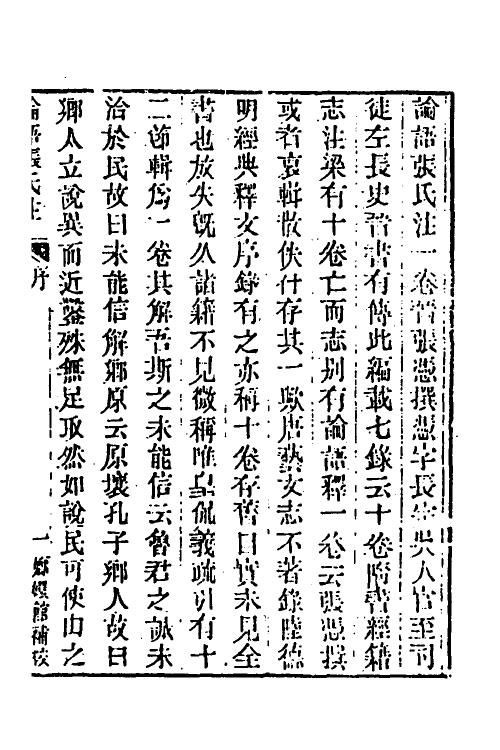 論語張氏注一卷晉張憑撰憑字長宗吳人官至司
徒左長史晉書有傳此編載七錄云十卷隋書經籍
志注梁有十卷亡而志別有論語釋一卷云張憑撰
或者裒輯散佚什存其一歟唐藝文志不著錄陸德
明經典釋文序錄有之亦稱十卷存舊目實未見全
書也放失旣久諸籍不見徵稱唯皇侃義疏引有十
二節輯爲一卷其解吾斯之未能信云魯君之誠未
洽於民故曰未能信解鄉原云原壤孔子鄉人故曰
鄉人立說異而近鑿殊無足取然如說民可使由之
論語張氏注 序 一 嫏嬛館補校